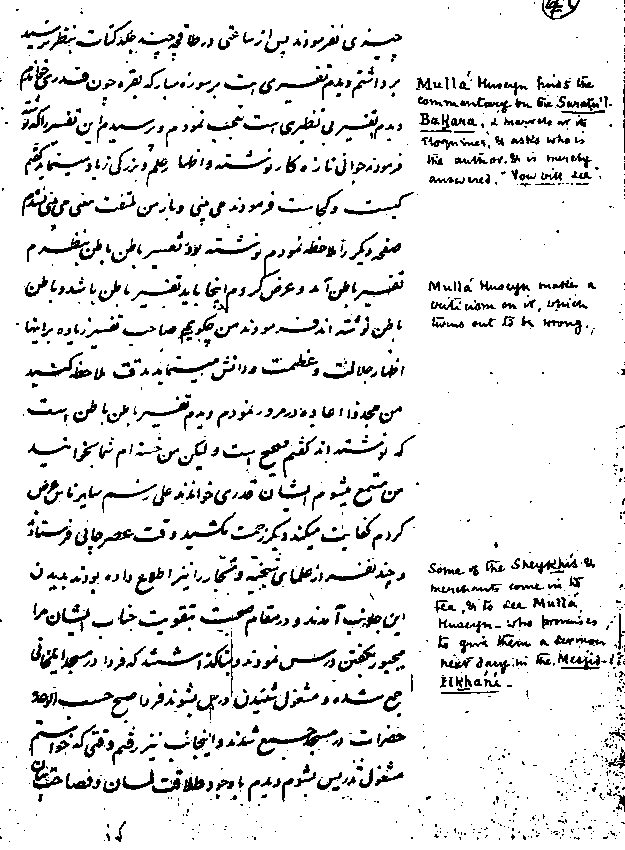 چیزی نفرمودند پس از ساعتی در طاقچه چند جلد کتاب بنظر رسید
برداشتم دیدم تفسیری است بر سوره مبارکه بقره چون قدری خواندم
دیدم تفسیر بی نظیری است تعجب نمودم و پرسیدم این تفسیر از
فرمودند جوانی تازه کار نوشته و اظهار علم و بزرگی زیاد مینماید گفتم
کیست و کجاست فرمودند می بینی و باز من ملتفت معنی می بینی نشدم
صفحه دیگر را ملاحظه نمودم نوشته بود تفسیر باطن باطن بنظرم
تفسیر باطن آمد و عرض کردم اینجا باید تفسیر باطن باشد و باطن
باطن نوشته اند فرمودند من چگویم صاحب تفسیر زیاده بر اینها
اظهار جلالت و عظمت و دانش مینماید بدقت ملاحظه کنید
من مجددا اعاده در مرور نمودم دیدم تفسیر باطن باطن است
که نوشته اند گفتم صحیح است ولیکن من خسته ام شما بخوانید
من مستمع میشوم ایشان قدری خواندند علی رسم سایر ناس عرض
کردم کفایت میکند دیگر زحمت نکشید وقت عصر چائی فرستادند
و چند نفر از علمای شیخیه و تجار را نیز اطلاع داده بودند بدیدن
این جانب آمدند و در مقام صحبت بتقویت جناب ایشان مرا
مجبور بگفتن درس نمودند و بنا گذاشتند که فردا در مسجد ایلخانی
جمع شده و مشغول شنیدن درس بشوند فردا صبح حسب الوعده
حضرات در مسجد جمع شدند و اینجانب نیز رفتم وقتی که خواستم
مشغول تدریس بشوم دیدم با وجود طلاقت لسان و فصاحت بیان
Mullá Huseyn finds the
commentary on the Suratu'l-
Bakara, & marvels at its
eloquence, & asks who is
the author, & is merely
answered, "You will see".
Mullá Huseyn makes a
criticism on it, which
turns out to be wrong.
Some of the Sheykhis &
merchants come in to
tea, & to see Mullá
Huseyn - who promises
to give them a sermon
next day in the Mesjid-i
Ilkhání -